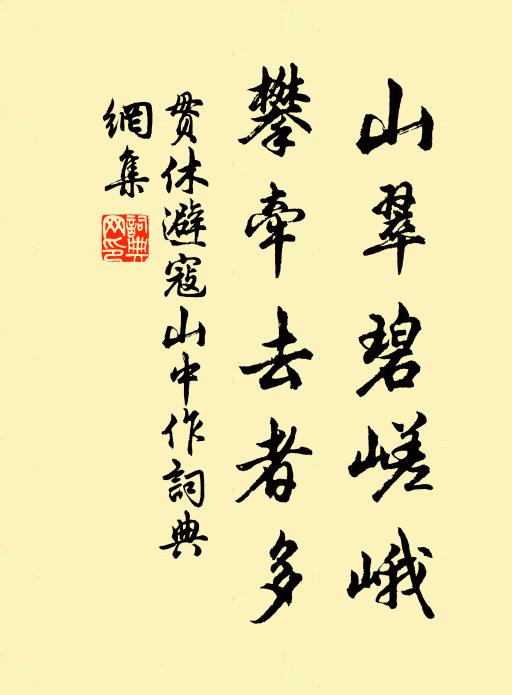 山翠碧嵯峨
攀牵去者多
贯休避寇山中作词典
網集
詞典
网印